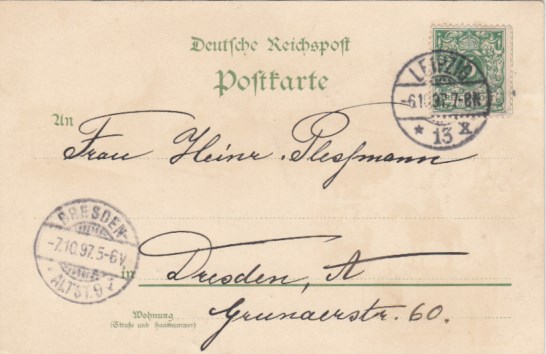 Deutsche Reichspost
Postkarte
LEIPZIG
-6.10.97.7-8N
* 13 X
An
Frau Heinr. Plessmann
DRESDEN-
-7.10.97.5-6V
ALTST.9
in
Dresden, A
Grunaerstr. 60.
Wohnung
(Straße und Hausnummer)